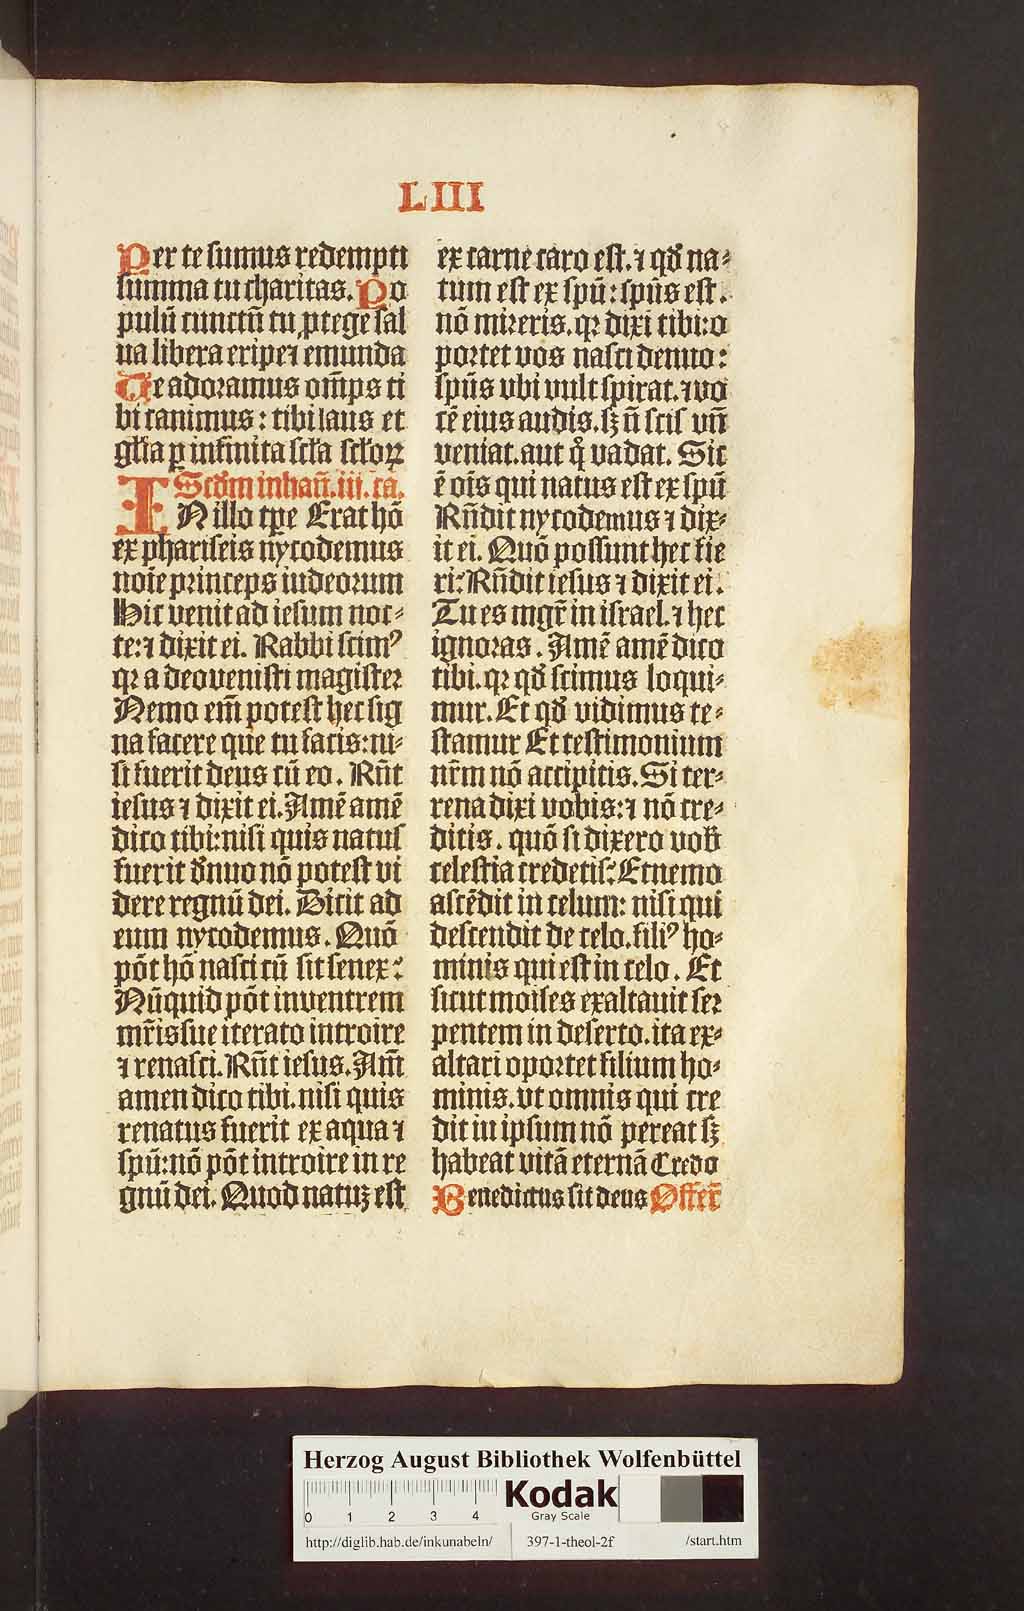 LIII
Per te sumus redempti
summa tu charitas. Po
pulū cunctū tu ꝓtege sal
ua libera eripe ⁊ emunda
Te adoramus om̄ps ti
bi canimus: tibi laus et
gl̄ia ꝑ infinita scl̄a scl̄oꝝ
Scd̄m iohañ. iii. ca.
IN illo tꝑe Erat hō
ex phariseis nycodemus
noīe princeps iudeorum
Hic venit ad iesum noc⸗
te: ⁊ dixit ei. Rabbi scimꝰ
qꝛ a deo venisti magister
Nemo em̄ potest hec sig
na facere que tu facis: ni⸗
si fuerit deus cū eo. Rn̄t
iesus ⁊ dixit ei. Amē amē
dico tibi: nisi quis natus
fuerit d̄nuo nō potest vi
dere regnū dei. Dicit ad
eum nycodemus. Quō
pōt hō nasci cū sit senex:
Nūquid pōt in ventrem
mr̄is sue iterato introire
⁊ renasci. Rn̄t iesus. Am̄
amen dico tibi. nisi quis
renatus fuerit ex aqua ⁊
spū: nō pōt introire in re
gnū dei. Quod natuꝫ est
ex carne caro est. ⁊ qd̄ na⸗
tum est ex spū: spūs est.
nō mireris. qꝛ dixi tibi: o
portet vos nasci denuo:
spūs vbi vult spirat. ⁊ vo
cē eius audis. sꝫ n̄ scis vn̄
veniat. aut qͦ vadat. Sic
ē oīs qui natus est ex spū
Rn̄dit nycodemus ⁊ dix⸗
it ei. Quō possunt hec fie
ri: Rn̄dit iesus ⁊ dixit ei.
Tu es mgr̄ in israel. ⁊ hec
ignoras. Amē amē dico
tibi. qꝛ qd̄ scimus loqui⸗
mur. Et qd̄ vidimus te⸗
stamur Et testimonium
nr̄m nō accipitis. Si ter⸗
rena dixi vobis: ⁊ nō cre⸗
ditis. quō si dixero vob̄
celestia credetis: Et nemo
ascēdit in celum: nisi qui
descendit de celo. filiꝰ ho⸗
minis qui est in celo. Et
sicut moises exaltauit ser
pentem in deserto. ita ex⸗
altari oportet filium ho⸗
minis. vt omnis qui cre
dit in ipsum nō pereat sꝫ
habeat vitā eternā Credo
Benedictus sit deus Offer̄
Herzog August Bibliothek Wolfenbüttel
0 1 2 3 4
Kodak
Gray Scale
http://diglib.hab.de/inkunabeln/ 397-1-theol-2f /start.htm